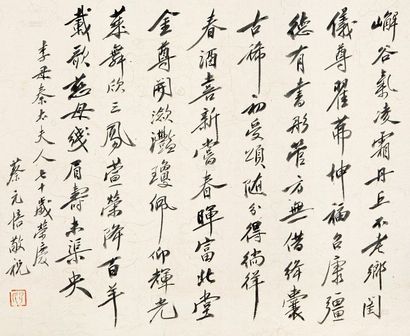 嶰谷氣凌霜丹丘不老鄉閨
儀尊翟茀仲福召康彊
德有書彤管方無借絳囊
古稀初受頌隨分得徜徉
春酒喜新嘗春暉富北堂
金尊開瀲灩瓊佩仰輝光
萊舞欣三鳳萱榮降百羊
載歌慈母綫眉壽未渠央
李母秦太夫人七十歲榮慶
蔡元培敬祝